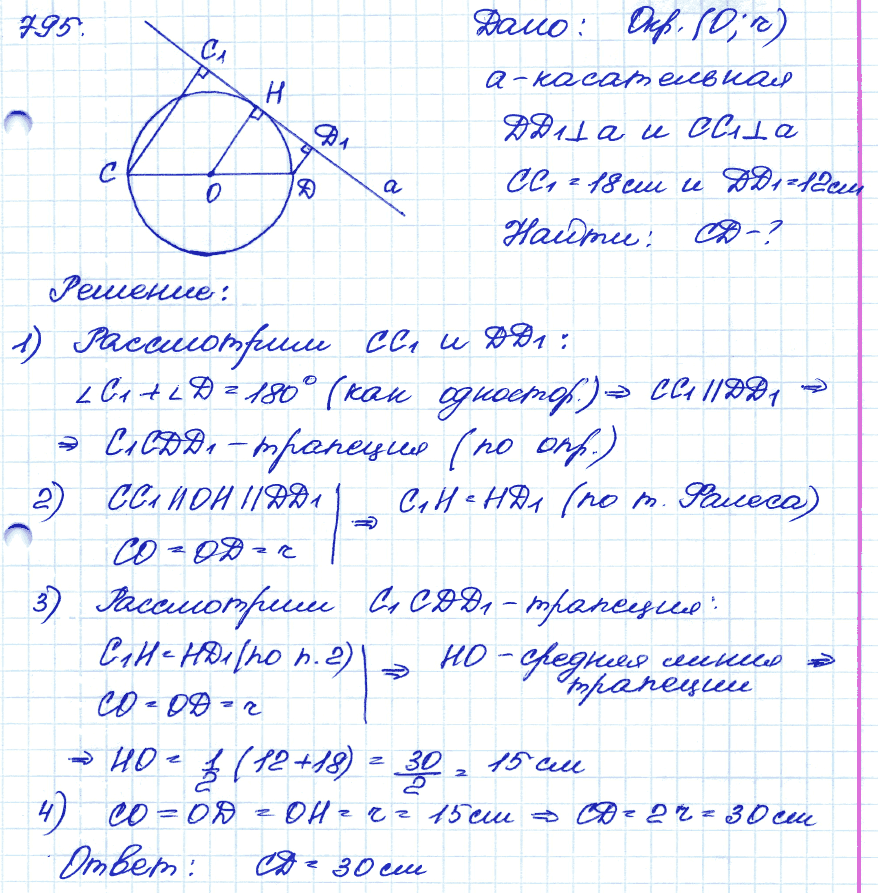 795.
Дано: Окр. (O; r)
a - касательная
DD₁⊥a и CC₁⊥a
CC₁ = 18 см и DD₁ = 12 см
Найти: CD - ?
C₁
H
D₁
C
O
D
a
Решение:
1) Рассмотрим CC₁ и DD₁:
∠C₁ + ∠D = 180° (как одностор.) ⇒ CC₁ || DD₁ ⇒
⇒ C₁CDD₁ - трапеция (по опр.)
2) CC₁ || OH || DD₁ | ⇒ C₁H = HD₁ (по т. Фалеса)
CO = OD = r
3) Рассмотрим C₁CDD₁ - трапеция:
C₁H = HD₁ (по п. 2) | ⇒ HO - средняя линия трапеции ⇒
CO = OD = r
⇒ HO = 1/2 (12+18) = 30/2 = 15 см
4) CO = OD = OH = r = 15 см ⇒ CD = 2r = 30 см
Ответ: CD = 30 см